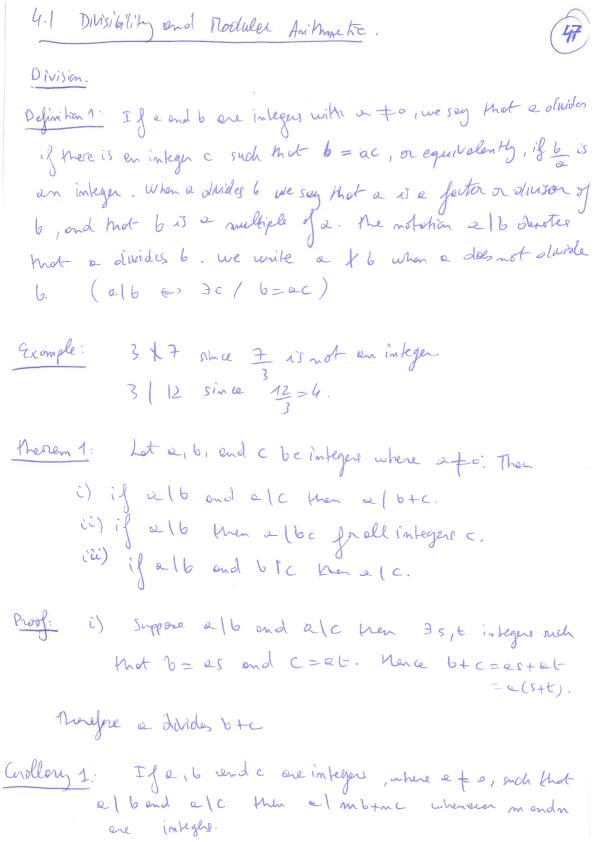 4.1 Divisibility and Modular Arithmetic.
47
Division.
Definition 1: If a and b are integers with a ≠ 0, we say that a divides
if there is an integer c such that b = ac, or equivalently, if b/a is
an integer. When a divides b we say that a is a factor or divisor of
b, and that b is a multiple of a. The notation a|b denotes
that a divides b. we write a ∤ b when a does not divide
b. (a|b ⟷ ∃c / b = ac)
Example: 3 ∤ 7 since 7/3 is not an integer
3 | 12 since 12/3 = 4.
Theorem 1: Let a, b, and c be integers where a ≠ 0. Then
i) if a|b and a|c then a|b+c.
ii) if a|b then a|bc for all integers c.
iii) if a|b and b|c then a|c.
Proof: i) Suppose a|b and a|c then ∃s,t integers such
that b = as and c = at. Hence b+c = as+at
= a(s+t).
Therefore a divides b+c
Corollary 1: If a, b and c are integers, where a ≠ 0, such that
a|b and a|c then a|mb+nc whenever m and n
are integers.